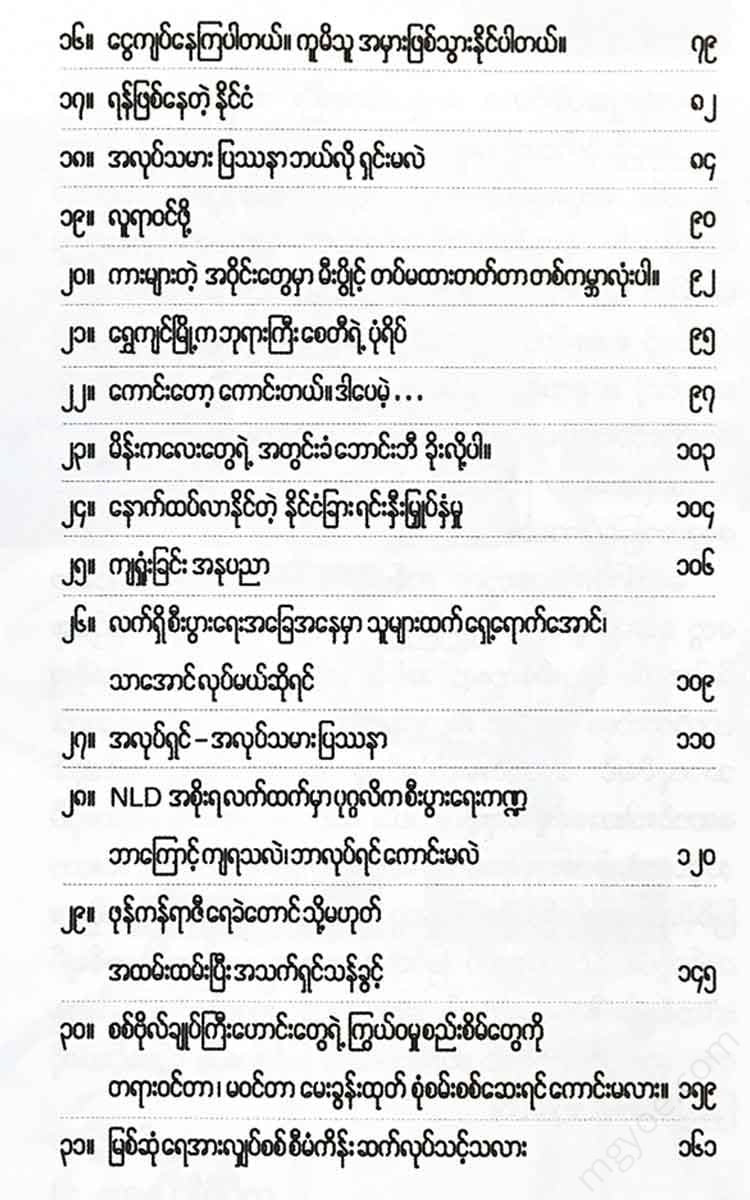 ၁၆။ ငွေကျပ်နေကြပါတယ်။ ကူမိသူ အမှားဖြစ်သွားနိုင်ပါတယ်။ ၇၉
၁၇။ ရန်ဖြစ်နေတဲ့ နိုင်ငံ ၈၂
၁၈။ အလုပ်သမား ပြဿနာ ဘယ်လို ရှင်းမလဲ ၈၄
၁၉။ လူရာဝင်ဖို့ ၉၀
၂၀။ ကားများတဲ့ အဝိုင်းတွေမှာ မီးပွိုင့် တပ်မထားတတ်တာ တစ်ကမ္ဘာလုံးပါ။ ၉၂
၂၁။ ရွှေကျင်မြို့က ဘုရားကြီး စေတီရဲ့ ပုံရိပ် ၉၅
၂၂။ ကောင်းတော့ ကောင်းတယ်။ ဒါပေမဲ့ ... ၉၇
၂၃။ မိန်းကလေးတွေရဲ့ အတွင်းခံဘောင်းဘီ ခိုးလို့ပါ။ ၁၀၃
၂၄။ နောက်ထပ်လာနိုင်တဲ့ နိုင်ငံခြားရင်းနှီးမြှုပ်နှံမှု ၁၀၄
၂၅။ ကျရှုံးခြင်း အနုပညာ ၁၀၆
၂၆။ လက်ရှိစီးပွားရေးအခြေအနေမှာ သူများထက် ရှေ့ရောက်အောင်၊
သာအောင် လုပ်မယ်ဆိုရင် ၁၀၉
၂၇။ အလုပ်ရှင် – အလုပ်သမားပြဿနာ ၁၁၀
၂၈။ NLD အစိုးရလက်ထက်မှာ ပုဂ္ဂလိက စီးပွားရေးကဏ္ဍ
ဘာကြောင့် ကျရသလဲ၊ ဘာလုပ်ရင် ကောင်းမလဲ ၁၂၀
၂၉။ ဖုန်ကန်ရာဇီ ရေခဲတောင် သို့မဟုတ်
အထမ်းထမ်းပြီး အသက်ရှင်သန်ခွင့် ၁၄၅
၃၀။ စစ်ဗိုလ်ချုပ်ကြီးဟောင်းတွေရဲ့ ကြွယ်ဝမှုစည်းစိမ်တွေကို
တရားဝင်တာ၊ မဝင်တာ မေးခွန်းထုတ် စုံစမ်းစစ်ဆေးရင် ကောင်းမလား။ ၁၅၉
၃၁။ မြစ်ဆုံရေအားလျှပ်စစ်စီမံကိန်း ဆက်လုပ်သင့်သလား ၁၆၁
mgyoe.com